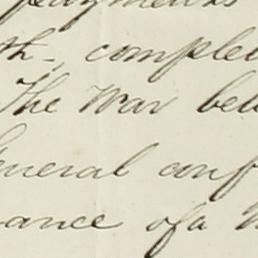 payments
th, comple
The War bet
eneral conf
ance of a